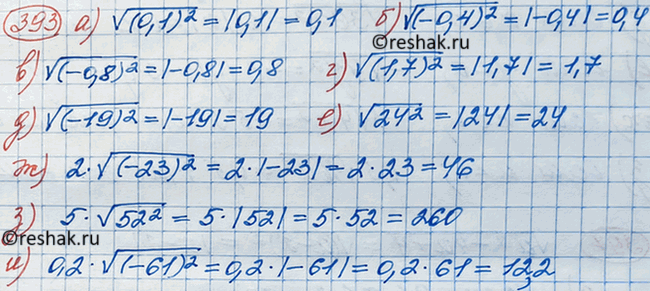 393 а) √(0,1)² = |0,1| = 0,1 б) √(-0,4)² = |-0,4| = 0,4
©reshak.ru
в) √(-0,8)² = |-0,8| = 0,8 г) √(1,7)² = |1,7| = 1,7
д) √(-19)² = |-19| = 19 е) √24² = |24| = 24
ж) 2·√(-23)² = 2·|-23| = 2·23 = 46
з) 5·√52² = 5·|52| = 5·52 = 260
©reshak.ru
и) 0,2·√(-61)² = 0,2·|-61| = 0,2·61 = 12,2